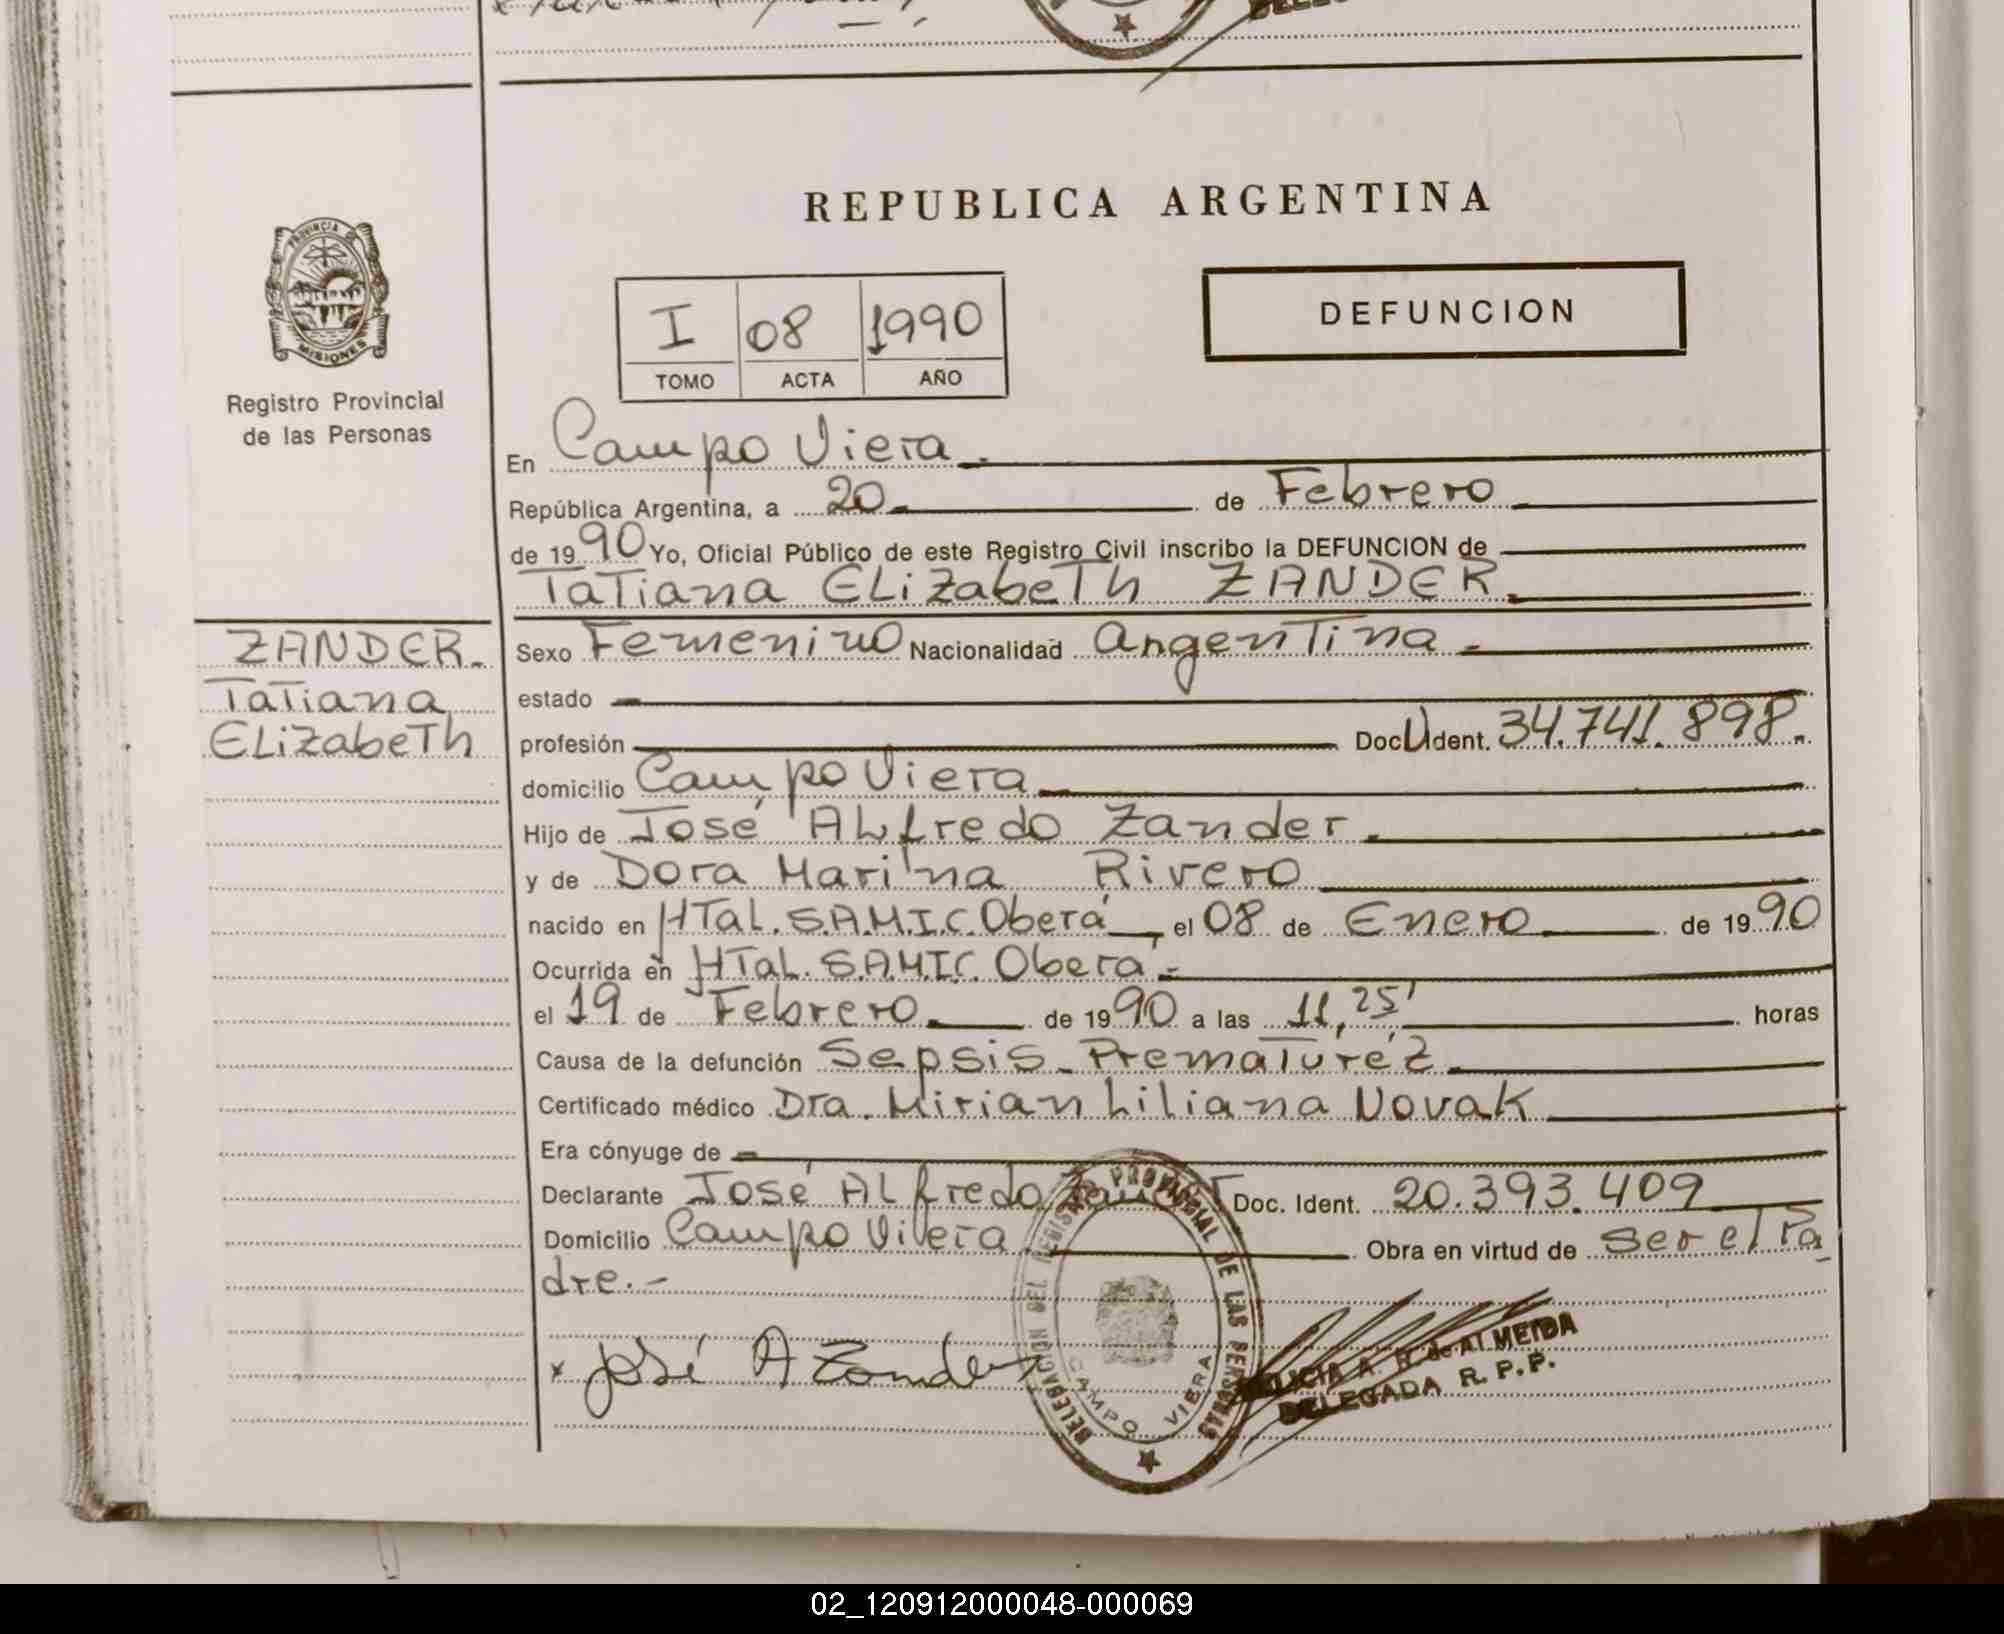 REPUBLICA ARGENTINA
PROVINCIA DE
MISIONES
Registro Provincial
de las Personas
I 08 1990
TOMO ACTA AÑO
DEFUNCION
En Campo Viera.
República Argentina, a 20 de Febrero
de 1990 Yo, Oficial Público de este Registro Civil inscribo la DEFUNCION de
Tatiana Elizabeth ZANDER.
ZANDER.
Tatiana
Elizabeth
Sexo Femenino Nacionalidad Argentina.
estado
profesión Doc U Ident. 34.741.898.
domicilio Campo Viera
Hijo de José Alfredo Zander.
y de Dora Marina Rivero
nacido en HTal. S.A.M.I.C. Oberá, el 08 de Enero de 1990
Ocurrida en HTal. S.A.M.I.C. Oberá.
el 19 de Febrero de 1990 a las 11,25' horas
Causa de la defunción Sepsis - Prematuréz
Certificado médico Dra. Mirian Liliana Novak
Era cónyuge de
Declarante José Alfredo Doc. Ident. 20.393.409
Domicilio Campo Viera Obra en virtud de ser el Pa
dre.-
x José A Zander
DELEGACION DEL REGISTRO PROVINCIAL DE LAS PERSONAS
CAMPO VIERA
A. R. de ALMEIDA
DELEGADA R.P.P.
02_120912000048-000069